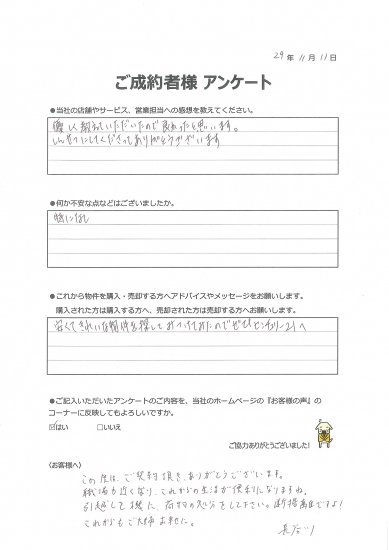 29年 11月 11日
ご成約者様 アンケート
●当社の店舗やサービス、営業担当への感想を教えてください。
優しく教えていただいたので良かったと思います。
しんせつにしてくださってありがとうございます
●何か不安な点などはございましたか。
特になし
●これから物件を購入・売却する方へアドバイスやメッセージをお願いします。
購入された方は購入する方へ、売却された方は売却する方へお願いします。
安くてきれいな物件を探して
のでぜひセンチュリー21へ
●ご記入いただいたアンケートのご内容を、当社のホームページの『お客様の声』の
コーナーに反映してもよろしいですか。
☑はい □いいえ
ご協力ありがとうございました！
〈お客様へ〉
この度は、ご契約頂き、ありがとうございます。
職場も近くなり、これからの生活が便利になりますね。
引越しを機に、荷物の処分をして下さい。断捨離ですよ！
これからもご
長谷川